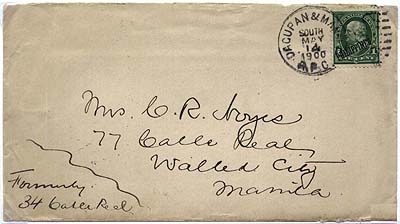 DAGUPAN & M
SOUTH
MAY
14
1900
R.P.O.
1
Mrs. C. R. Noyes
77 Calle Real,
Walled City
Manila.
Formerly
34 Calle Real